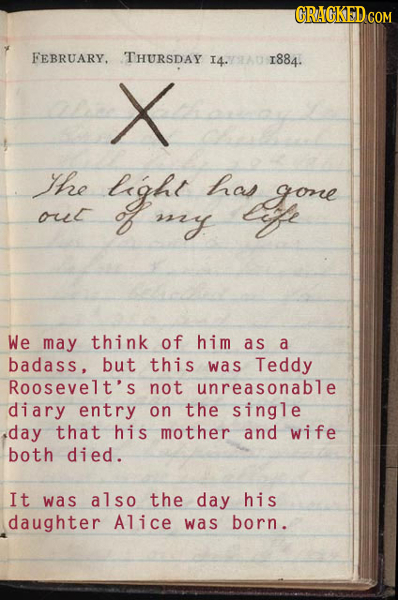 CRACKED.COM
FEBRUARY, THURSDAY 14. 1884.
X
The light has gone
out of my life
We may think of him as a
badass, but this was Teddy
Roosevelt's not unreasonable
diary entry on the single
day that his mother and wife
both died.
It was also the day his
daughter Alice was born.